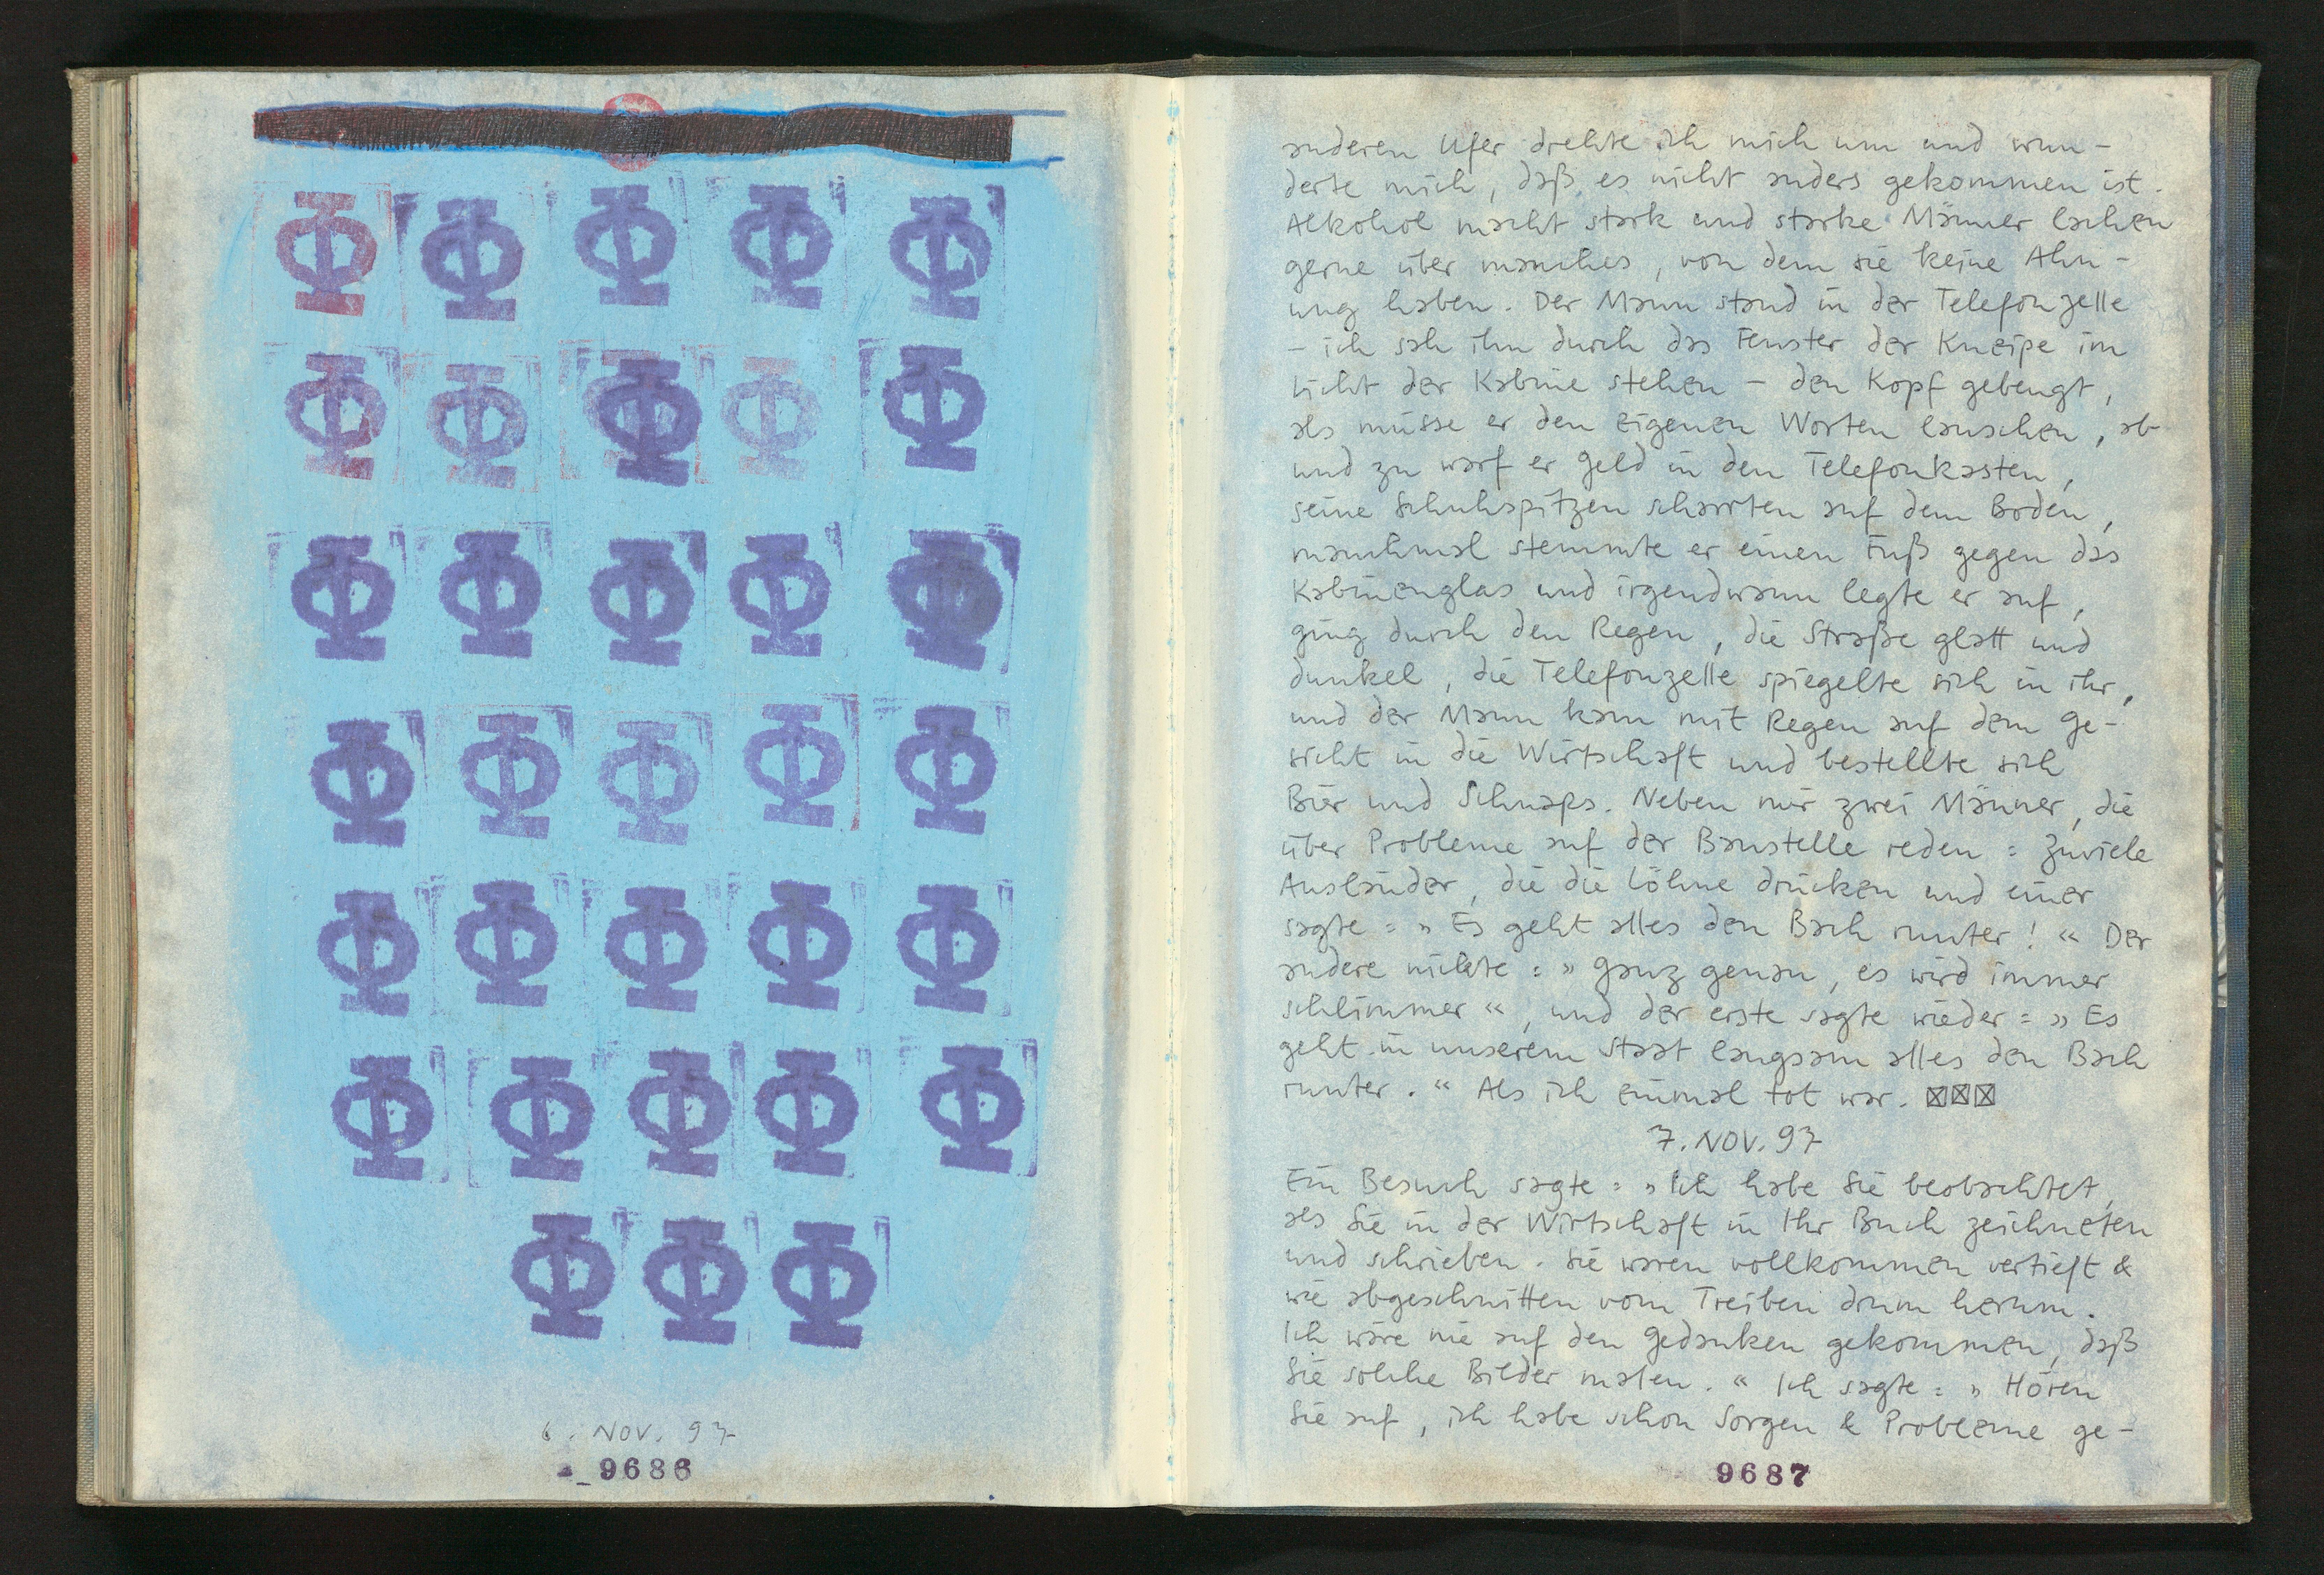 Φ Φ Φ Φ Φ
Φ Φ Φ Φ Φ
Φ Φ Φ Φ Φ
Φ Φ Φ Φ Φ
Φ Φ Φ Φ Φ
Φ Φ Φ Φ Φ
Φ Φ Φ
6. NOV. 97
9686
anderen Ufer drehte ich mich um und wun-
derte mich, daß es nicht anders gekommen ist.
Alkohol macht stark und starke Männer lachen
gerne über manches, von dem sie keine Ahn-
ung haben. Der Mann stand in der Telefonzelle
– ich sah ihn durch das Fenster der Kneipe im
Licht der Kabine stehen – den Kopf gebeugt,
als müsse er den eigenen Worten lauschen, ab
und zu warf er Geld in den Telefonkasten,
seine Schuhspitzen scharrten auf dem Boden,
manchmal stemmte er einen Fuß gegen das
Kabinenglas und irgendwann legte er auf,
ging durch den Regen, die Straße glatt und
dunkel, die Telefonzelle spiegelte sich in ihr,
und der Mann kam mit Regen auf dem Ge-
sicht in die Wirtschaft und bestellte sich
Bier und Schnaps. Neben mir zwei Männer, die
über Probleme auf der Baustelle reden: Zuviele
Ausländer, die die Löhne drücken und einer
sagte: » Es geht alles den Bach runter! « Der
andere nickte: » Ganz genau, es wird immer
schlimmer «, und der erste sagte wieder: » Es
geht in unserem Staat langsam alles den Bach
runter. “ Als ich einmal tot war. ☒☒☒
7. NOV. 97
Ein Besuch sagte: » Ich habe Sie beobachtet,
als Sie in der Wirtschaft in Ihr Buch zeichneten
und schrieben. Sie waren vollkommen vertieft &
wie abgeschnitten vom Treiben drum herum.
Ich wäre nie auf den Gedanken gekommen, daß
Sie solche Bilder malen. “ Ich sagte: » Hören
Sie auf, ich habe schon Sorgen & Probleme ge-
9687